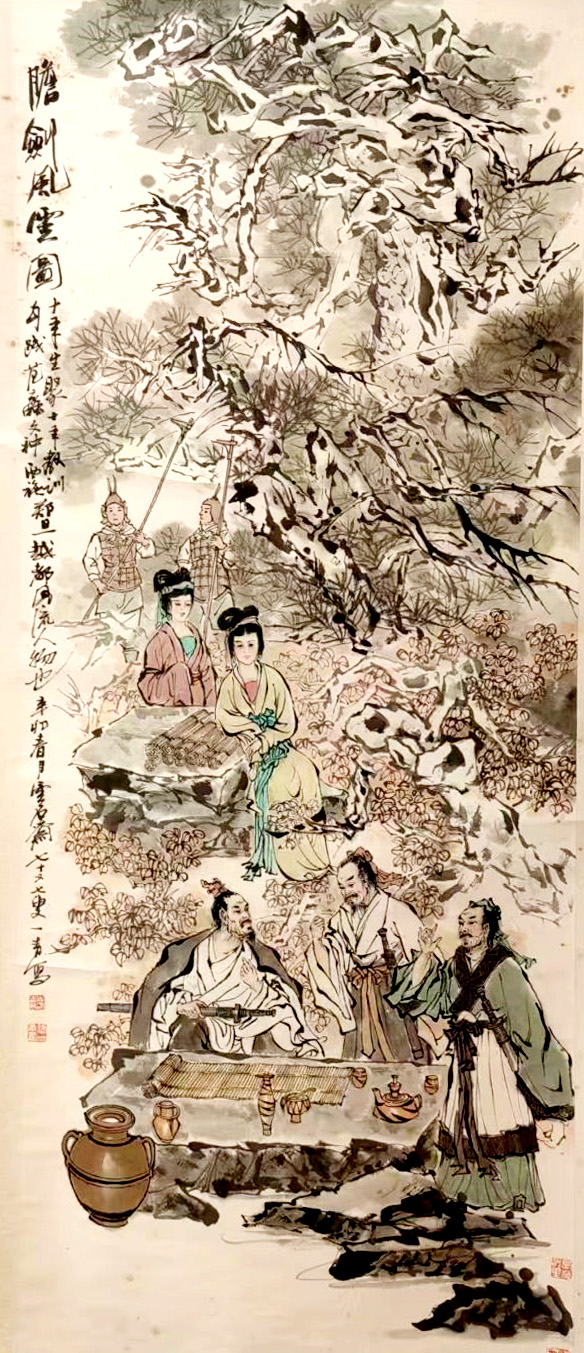 膽劍風雲圖
十年生聚十年教训
勾践范蠡文种西施鄭旦越都風流人物也辛卯春月雲石齋七十七叟一青寫